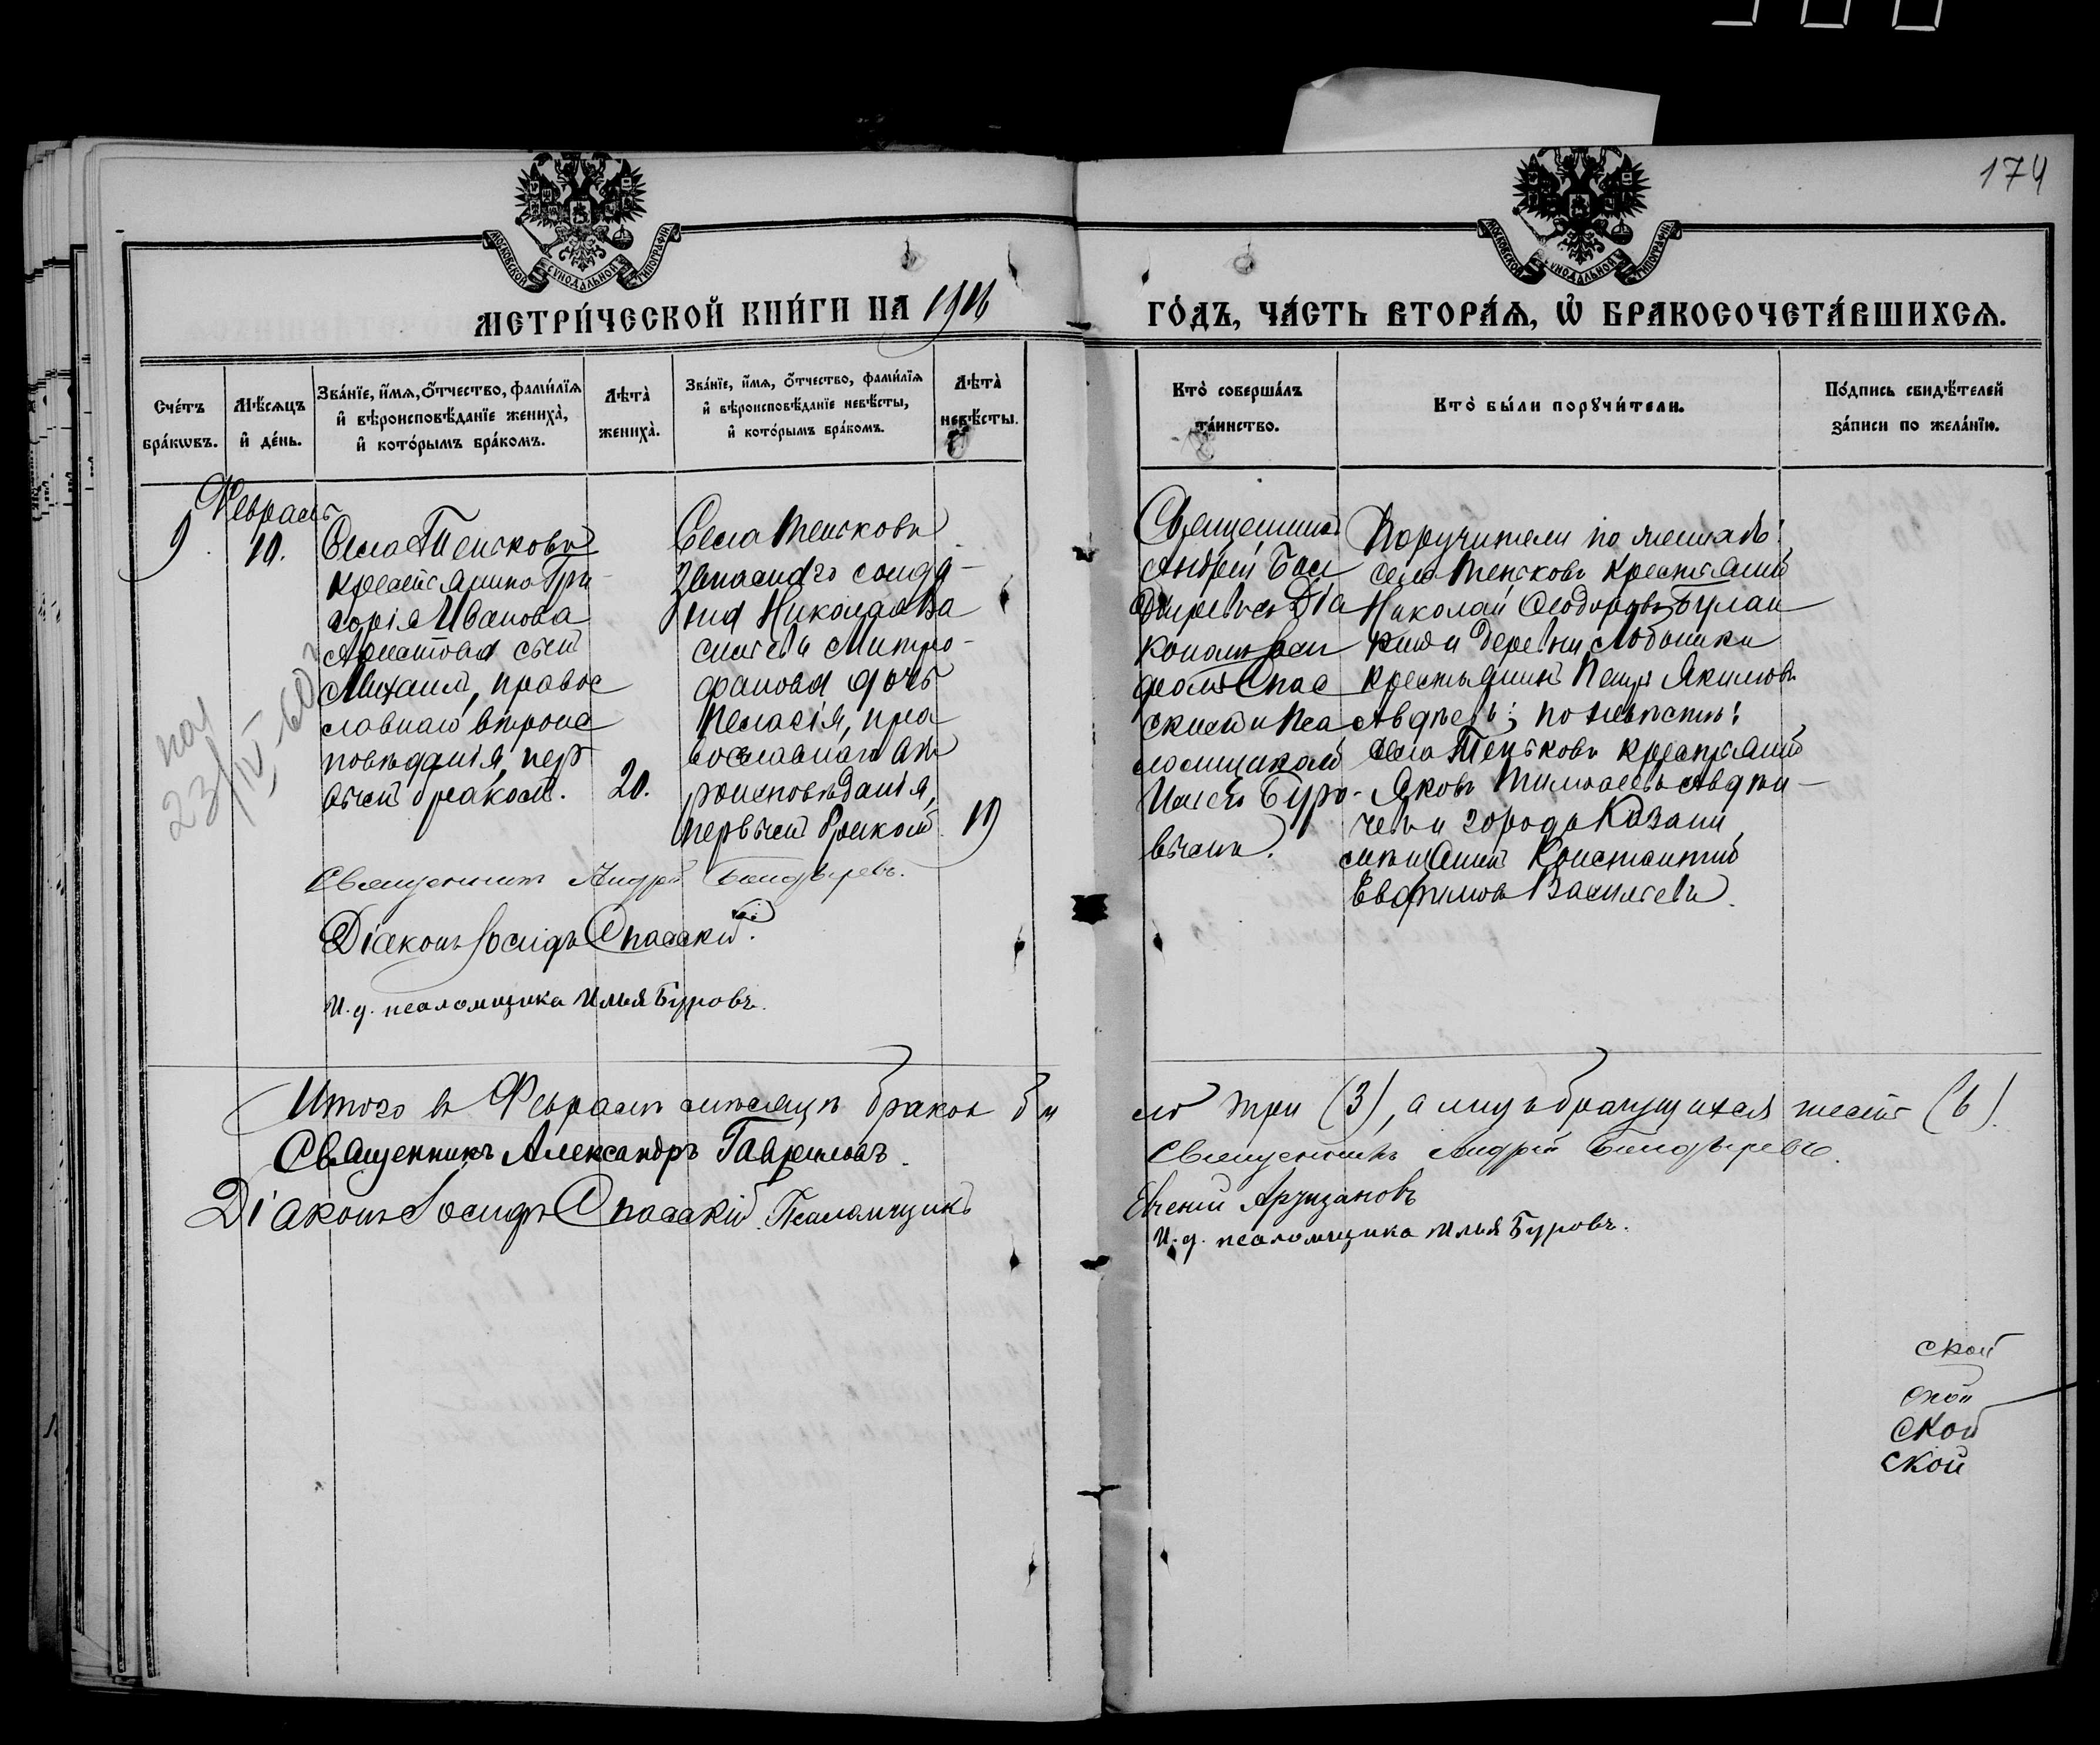 174
МОСКОВСКОЙ СѴНОДАЛЬНОЙ ТИПОГРАФІИ
МОСКОВСКОЙ СѴНОДАЛЬНОЙ ТИПОГРАФІИ
МЕТРИ́ЧЕСКОЙ КНИ́ГИ НА 1916
ГО́ДЪ, ЧА́СТЬ ВТОРА́Ѧ, Ѽ БРАКОСОЧЕТА́ВШИХСѦ.
Сче́тъ
бра́кѡвъ.
Мѣ́сяцъ
и҆ де́нь.
Зва́нїе, и҆́мѧ, ѻ҆́тчество, фами́лїѧ
и҆ вѣроисповѣ́данїе жениха̀,
и҆ кото́рымъ бра́комъ.
Лѣта̀
жениха̀.
Зва́нїе, и҆́мѧ, ѻ҆́тчество, фами́лїѧ
и҆ вѣроисповѣ́данїе невѣ́сты,
и҆ кото́рымъ бра́комъ.
Лѣта̀
невѣ́сты.
Кто̀ соверша́лъ
та́инство.
Кто̀ бы́ли порꙋчи́тели.
По́дпись свидѣ́телей
за́писи по жела́нїю.
Февраль
9.
10.
Села Теньковъ
крестьянина Гри-
горія Иванова
сынъ
Михаилъ, право
славнаго вѣроис
повѣданія, пер
вымъ бракомъ.
20.
Села Теньковъ
запаснаго солда-
та Николая Ва
сильева Митро-
фанова дочь
Пелагія, пра
вославнаго вѣ
роисповѣданія,
первымъ бракомъ
19
Священникъ
Андрей Бол
дыревъ съ Діа
кономъ
Спас
скимъ и Пса
ломщикомъ
Ильей Буро-
вымъ.
Поручители по женихѣ:
села Теньковъ крестьянинъ
Николай Ѳеодоровъ Булан
кинъ и деревни Лобышки
крестьянинъ Петръ Якимовъ
Авдѣевъ; по невѣстѣ:
села Теньковъ крестьянинъ
Яковъ Тимоѳеевъ Авдѣи-
чевъ и города Казани
мѣщанинъ Константинъ
Евфимовъ Васильевъ.
23/IV-60
Священникъ Андрей Болдыревъ.
Діаконъ Іосифъ Спасскій.
И.д. псаломщика Илья Буровъ.
Итого въ Февралѣ мѣсяцѣ браковъ бы
ло три (3), а лицъ брачущихся шесть (6).
Священникъ Александръ Гавриловъ.
Священникъ Андрей Болдыревъ.
Діаконъ Іосифъ Спасскій. Псаломщикъ
Евгеній Арунзановъ
И.д. псаломщика Илья Буровъ.
ской
ской
ской
ской